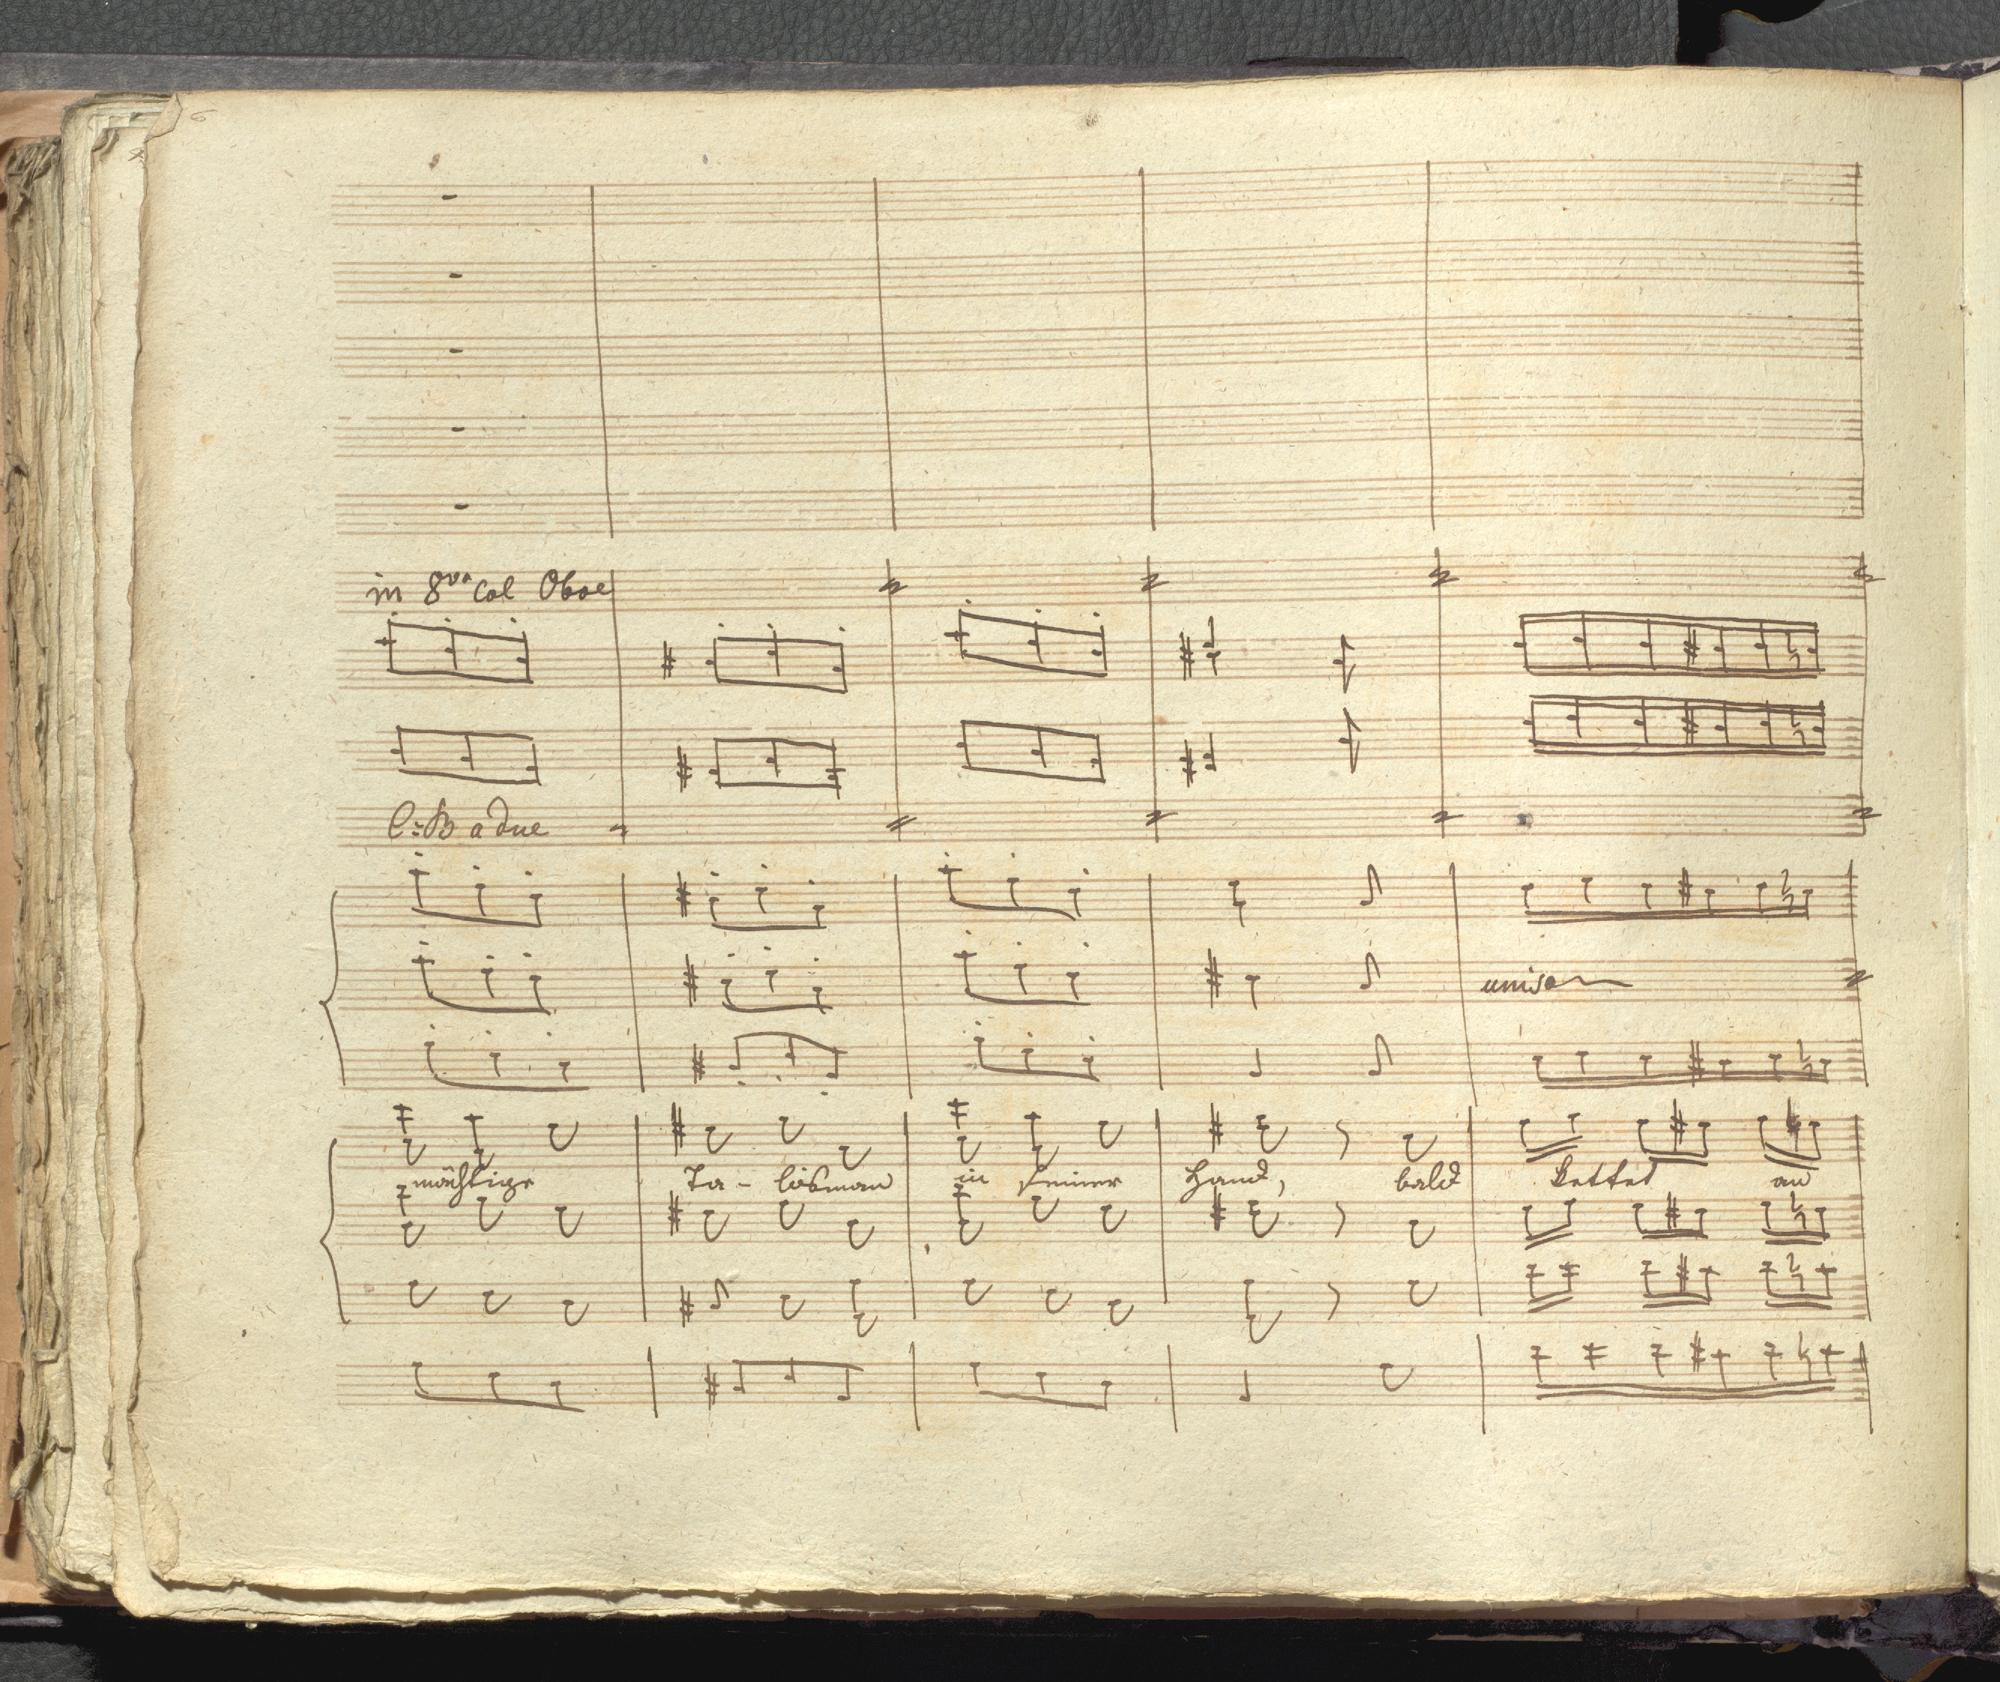 in 8va Col Oboe
C: B a due
unison
mächtige Ta - lisman in seiner Hand, bald kettet an